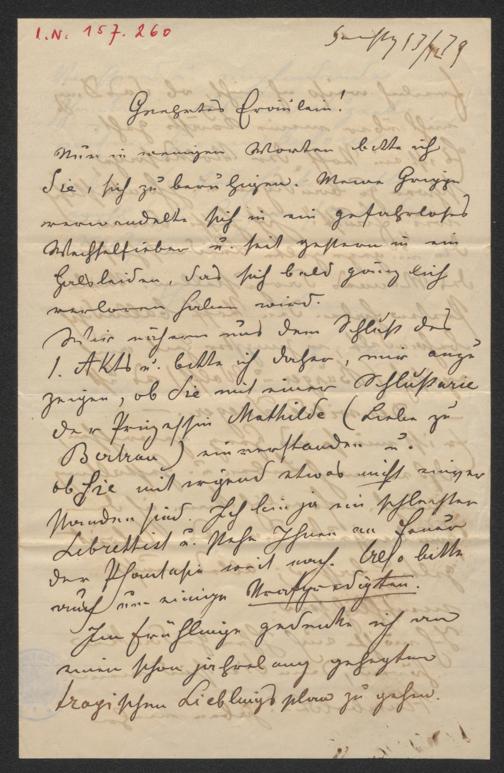 I.N. 157.260
13/12 79
Geehrtes Fräulein!
Nur in wenigen Worten bitte ich
Sie, sich zu beruhigen. Meine Grippe
verwandelte sich in ein gefahrloses
Wechselfieber u. seit gestern in ein
Halsleiden, das sich bald gänzlich
verloren haben wird.
Wir nähern uns dem Schluß des
1. Akts u. bitte ich daher, mir anzu
zeigen, ob Sie mit einer Schlußarie
der Prinzessin Mathilde (Liebe zu
Bertran) einverstanden u.
ob Sie mit irgend etwas nicht einver
standen sind. Ich bin ja ein schlechter
Librettist u. stehe Ihnen an Feuer
der Phantasie weit nach. Also bitte
auch um einige
Im Frühlinge gedenke ich an
einen schon jahrelang gehegten
tragischen Lieblingsplan zu gehen.